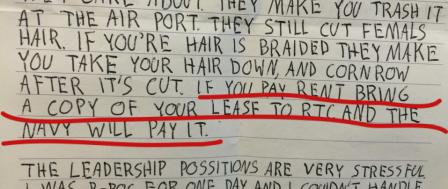 THEY CARE ABOUT. THEY MAKE YOU TRASH IT
AT THE AIR PORT. THEY STILL CUT FEMALS
HAIR. IF YOU'RE HAIR IS BRAIDED THEY MAKE
YOU TAKE YOUR HAIR DOWN, AND CORNROW
AFTER IT'S CUT. IF YOU PAY RENT BRING
A COPY OF YOUR LEASE TO RTC AND THE
NAVY WILL PAY IT.
THE LEADERSHIP POSSITIONS ARE VERY STRESSFUL
I WAS FOR ONE DAY AND I COULDN'T HANDLE